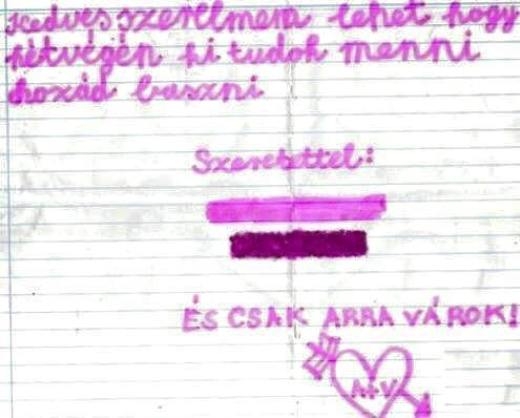 Kedves szerelmem lehet hogy
hétvégén ki tudok menni
hozád baszni
Szeretettel:
ÉS CSAK ARRA VÁROK!
A+V